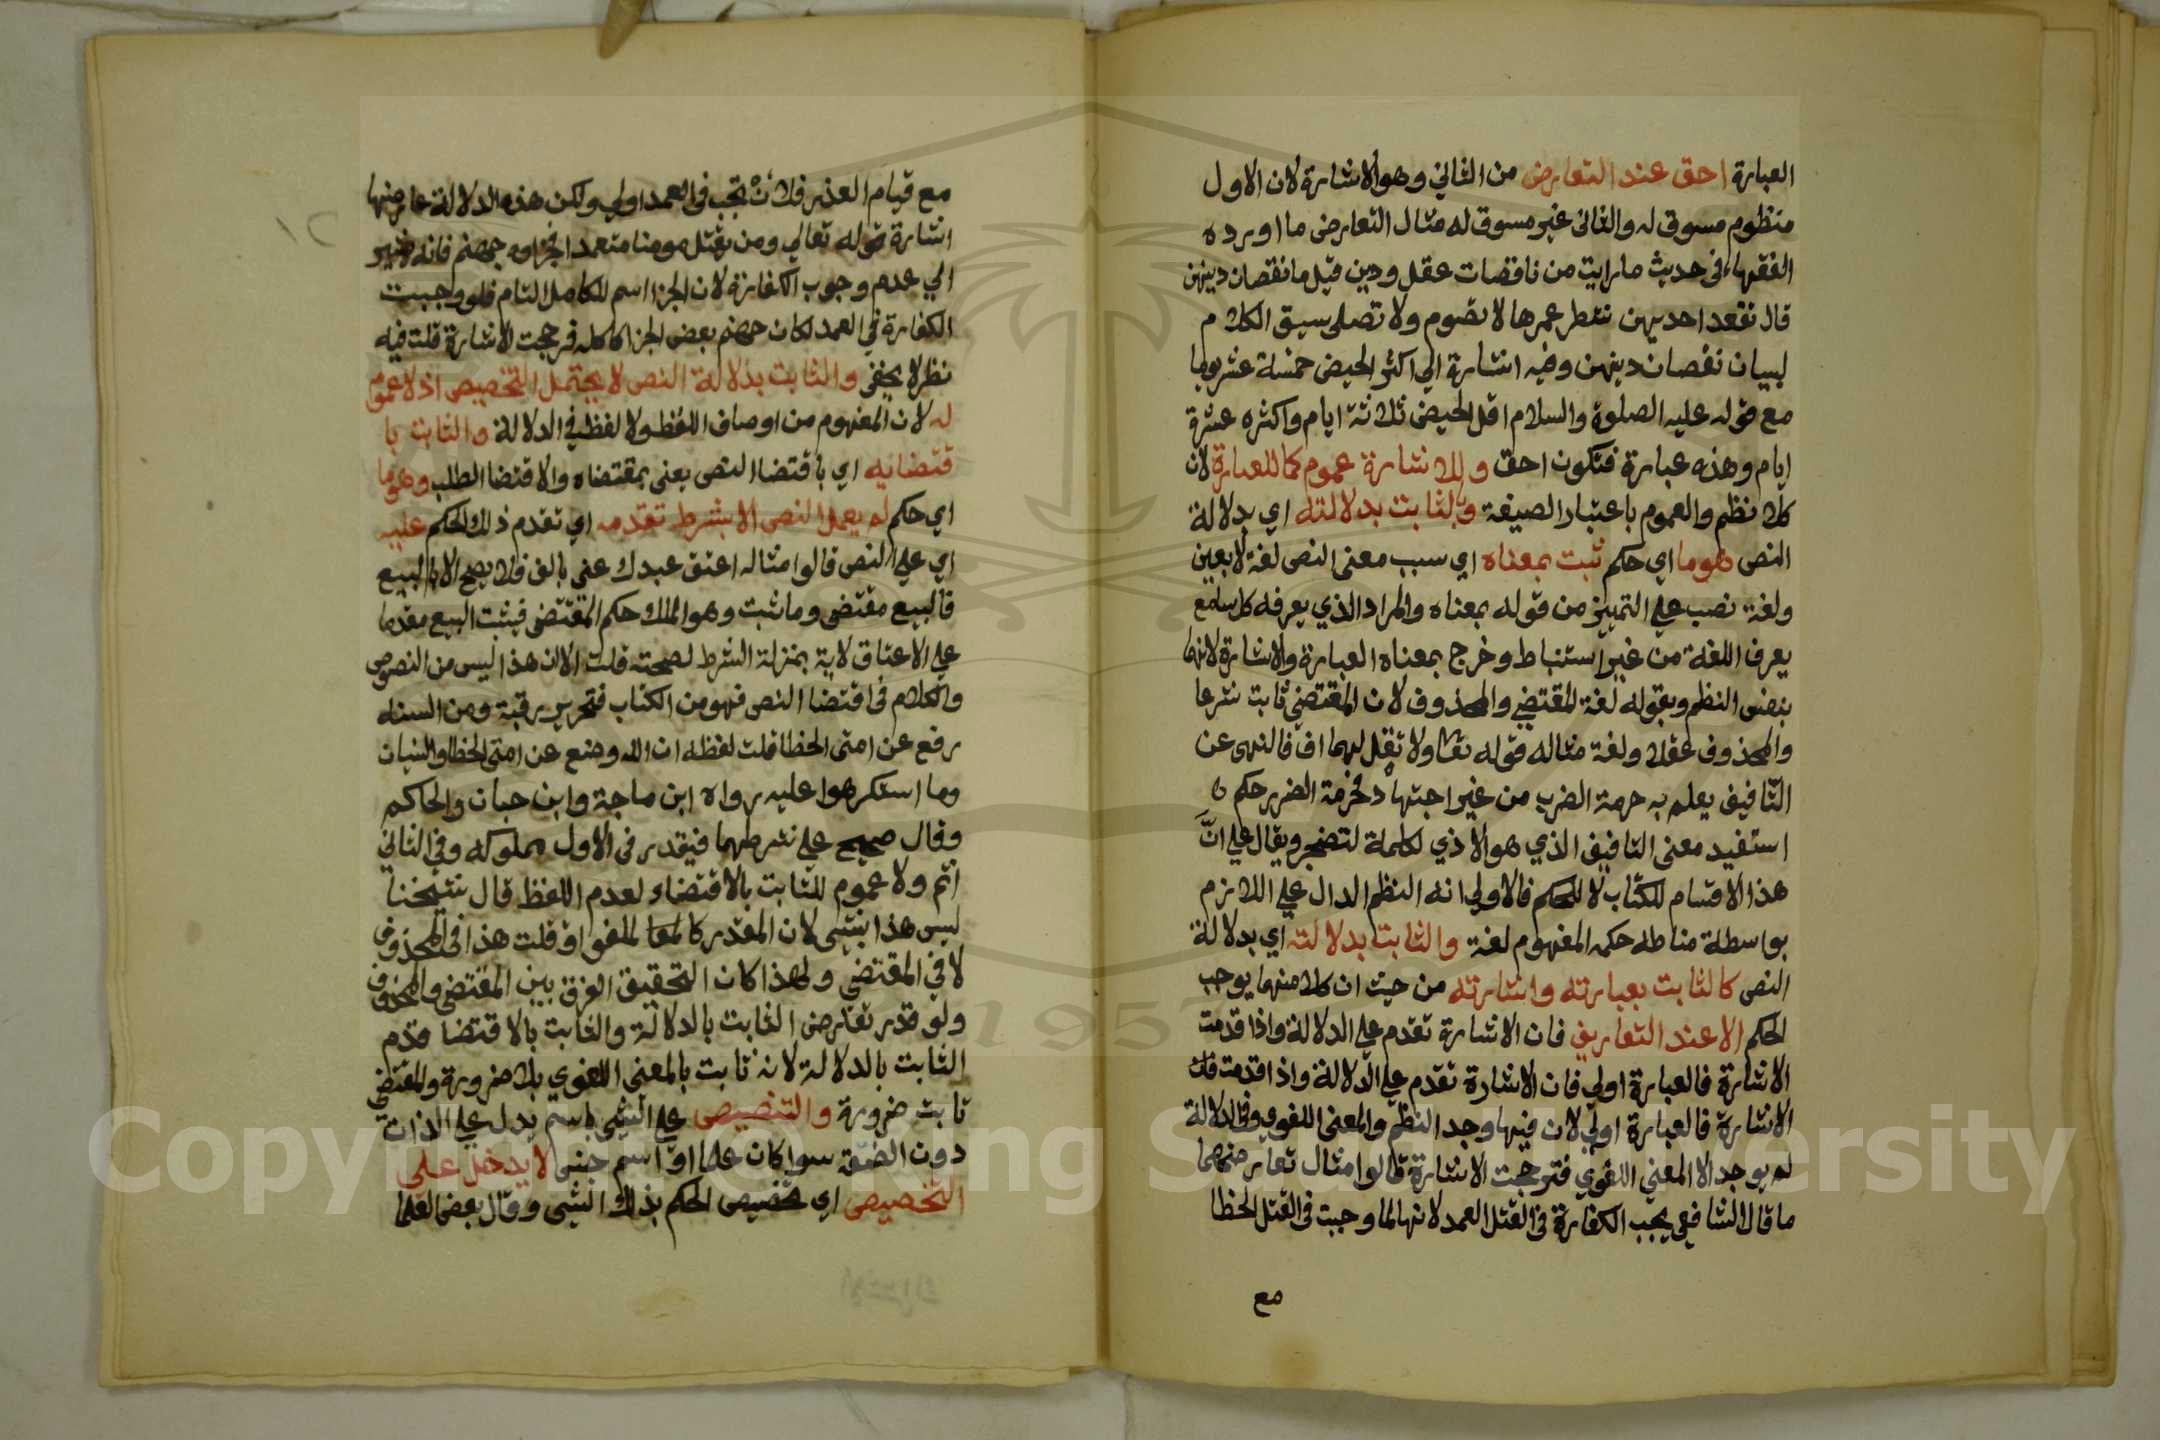 العبارة احق عند التعارض من الثاني وهو الاشارة لان الاول
منظوم مسوق له والثانى غير مسوق له مثال التعارض ما اورده
الفقهاء فى حديث ما رايت من ناقصات عقل ودين قيل ما نقصان دينهن
قال تقعد احديهن شطر عمرها لا تصوم ولا تصلى سيق الكلام
لبيان نقصان دينهن وفيه اشارة الي اكثر الحيض خمسة عشر يوما
مع قوله عليه الصلوة والسلام اقل الحيض ثلاثة ايام واكثره عشرة
ايام وهذه عبارة فتكون احق وللاشارة عموم كما للعبارة لان
كلا نظم والعموم باعتبار الصيغة والثابت بدلالته اي بدلالة
النص هو ما اي حكم ثبت بمعناه اي سبب معنى النص لغة لا بعين
ولغة نصب علي التمييز من قوله بمعناه والمراد الذي يعرفه كل سامع
يعرف اللغة من غير استنباط وخرج بمعناه العبارة والاشارة لانهما
بنفس النظم وبقوله لغة المقتضي والمحذوف لان المقتضي ثابت شرعا
والمحذوف عقلا ولغة مثاله قوله تعا ولا تقل لهما اف فالنهى عن
التافيف يعلم به حرمة الضرب من غير اجتهاد فحرمة الضرر حكم
استفيد معنى التافيف الذي هو الاذي لكلمة لتضجر ويقال علي انّ
هذا الاقسام للكتاب لا للحكم فالاولي انه النظم الدال علي اللازم
بواسطة مناط حكمه المفهوم لغة والثابت بدلالته اي بدلالة
النص كالثابت بعبارته واشارته من حيث ان كلا منهما يوجب
الحكم الا عند التعارض فان الاشارة تقدم علي الدلالة واذا قدمت
الاشارة فالعبارة اولي فان الاشارة تقدم علي الدلالة واذا قدمت
الاشارة فالعبارة اولي لان فيها وجد النظم والمعنى اللغوي وفى الدلالة
لم يوجد الا المعني اللغوي فترجحت الاشارة قالوا مثال تعارضهما
ما قال الشافعي يجب الكفارة فى القتل العمد لانها لما وجبت فى القتل الخطا
مع
مع قيام العذر فلان تجب فى العمد اولي ولكن هذه الدلالة عارضتها
اشارة قوله تعالي ومن يقتل مومنا متعمدا فجزاوه جهنم فانه يشير
الي عدم وجوب الكفارة لان الجزا اسم للكامل التام فلو وجبت
الكفارة في العمد لكان جهنم بعض الجزا لا كله فرجحت الاشارة قلت فيه
نظر لا يخفى والثابت بدلالة النص لا يحتمل التخصيص اذ لا عموم
له لان المفهوم من اوصاف اللفظ ولا لفظ في الدلالة والثابت با
قتضايه اي باقتضا النص يعنى بمقتضاه والاقتضا الطلب وهو ما
اي حكم لم يعمل النص الا بشرط تقدمه اي تقدم ذلك الحكم عليه
اي علي النص قالوا مثاله اعتق عبدك عني بالف فلا يصح الا بالبيع
فالبيع مقتضى وما ثبت وهو الملك حكم المقتضى فيثبت البيع مقدما
علي الاعتاق لانه بمنزلة الشرط لصحته قلت الا ان هذا ليس من النصوص
والكلام فى اقتضا النص فهو من الكتاب فتحرير رقبة ومن السنه
رفع عن امتى الخطا قلت لفظه ان الله وضع عن امتى الخطا والنسيان
وما استكرهوا عليه رواه ابن ماجة وابن حبان والحاكم
وقال صحيح علي شرطهما فيقدر فى الاول مملوكه وفي الثاني
اثم ولا عموم للثابت بالاقتضاء لعدم اللفظ قال شيخنا
ليس هذا بشى لان المقدر كالملفوظ قلت هذا فى المحذوف
لا في المقتضي ولهذا كان التحقيق الفرق بين المقتضى والمحذوف
ولو قدر تعارض الثابت بالدلالة والثابت بالاقتضا قدم
الثابت بالدلالة لانه ثابت بالمعني اللغوي بلا ضرورة والمقتضي
ثابت ضرورة والتنصيص علي الشي باسم يدل علي الذات
دون الصفة سوا كان علما او اسم جنس لا يدخل على
التخصيص اي تخصيص الحكم بذلك الشي وقال بعض العلما
١٢
1957
Copyright © King Saud University